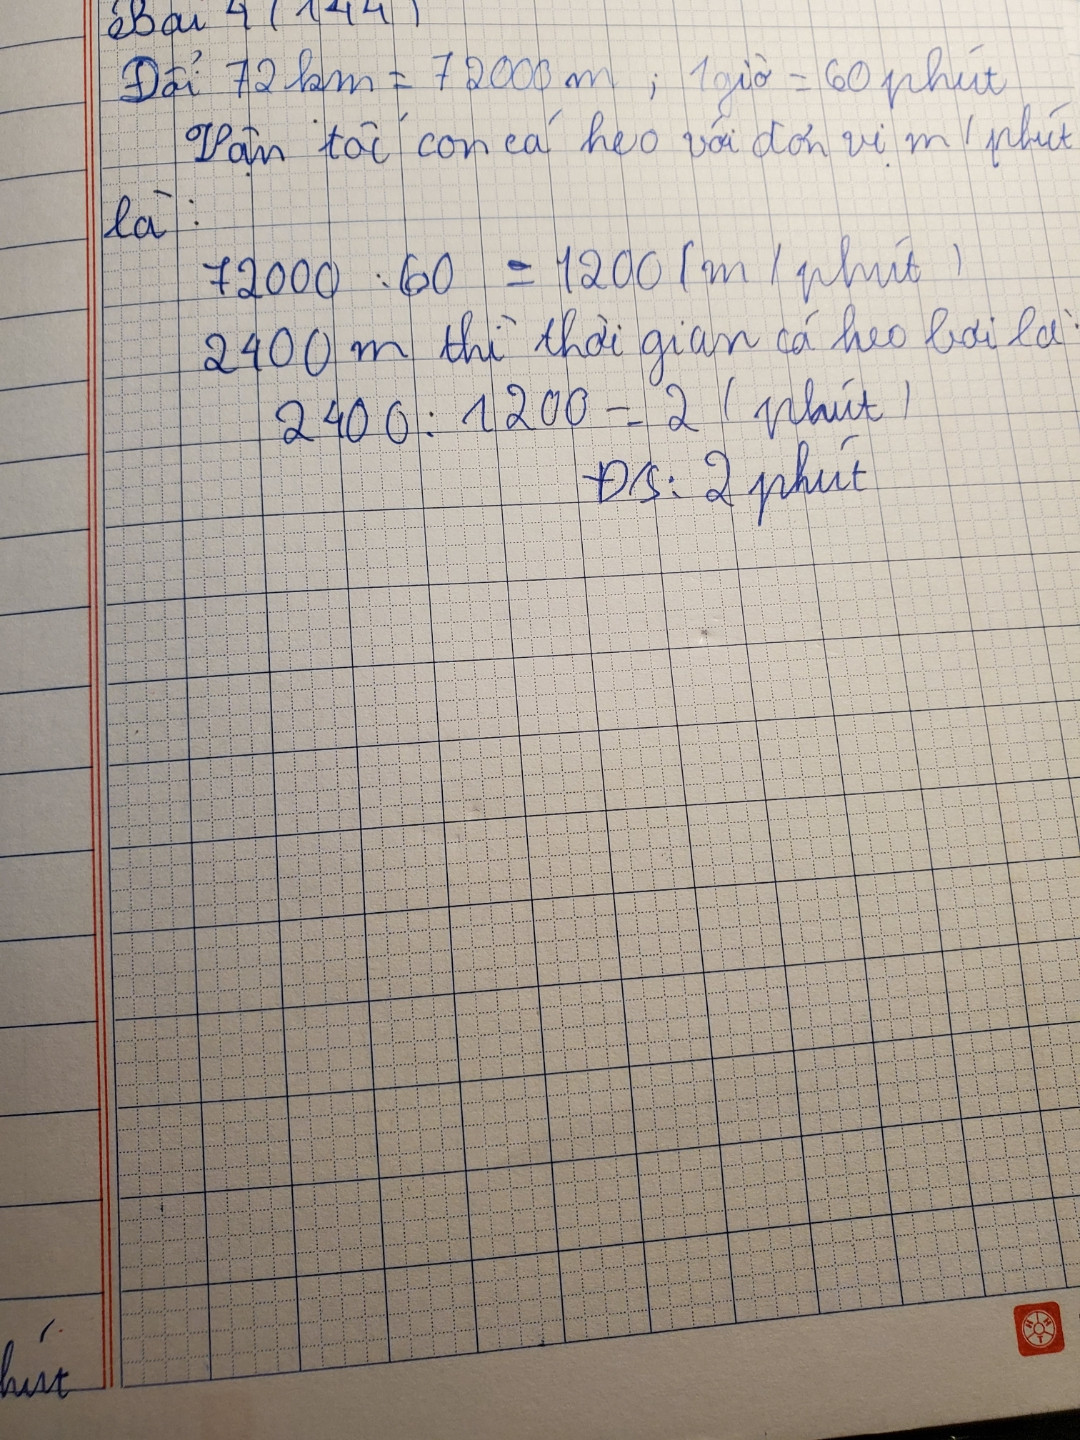 Bài 4 (144)
Đổi 72km = 72000m ; 1giờ = 60 phút
Vận tốc con cá heo với đơn vị m/phút
là :
72000 : 60 = 1200 (m/phút)
2400m thì thời gian cá heo bơi là:
2400 : 1200 = 2 (phút)
Đ/S: 2 phút
hút